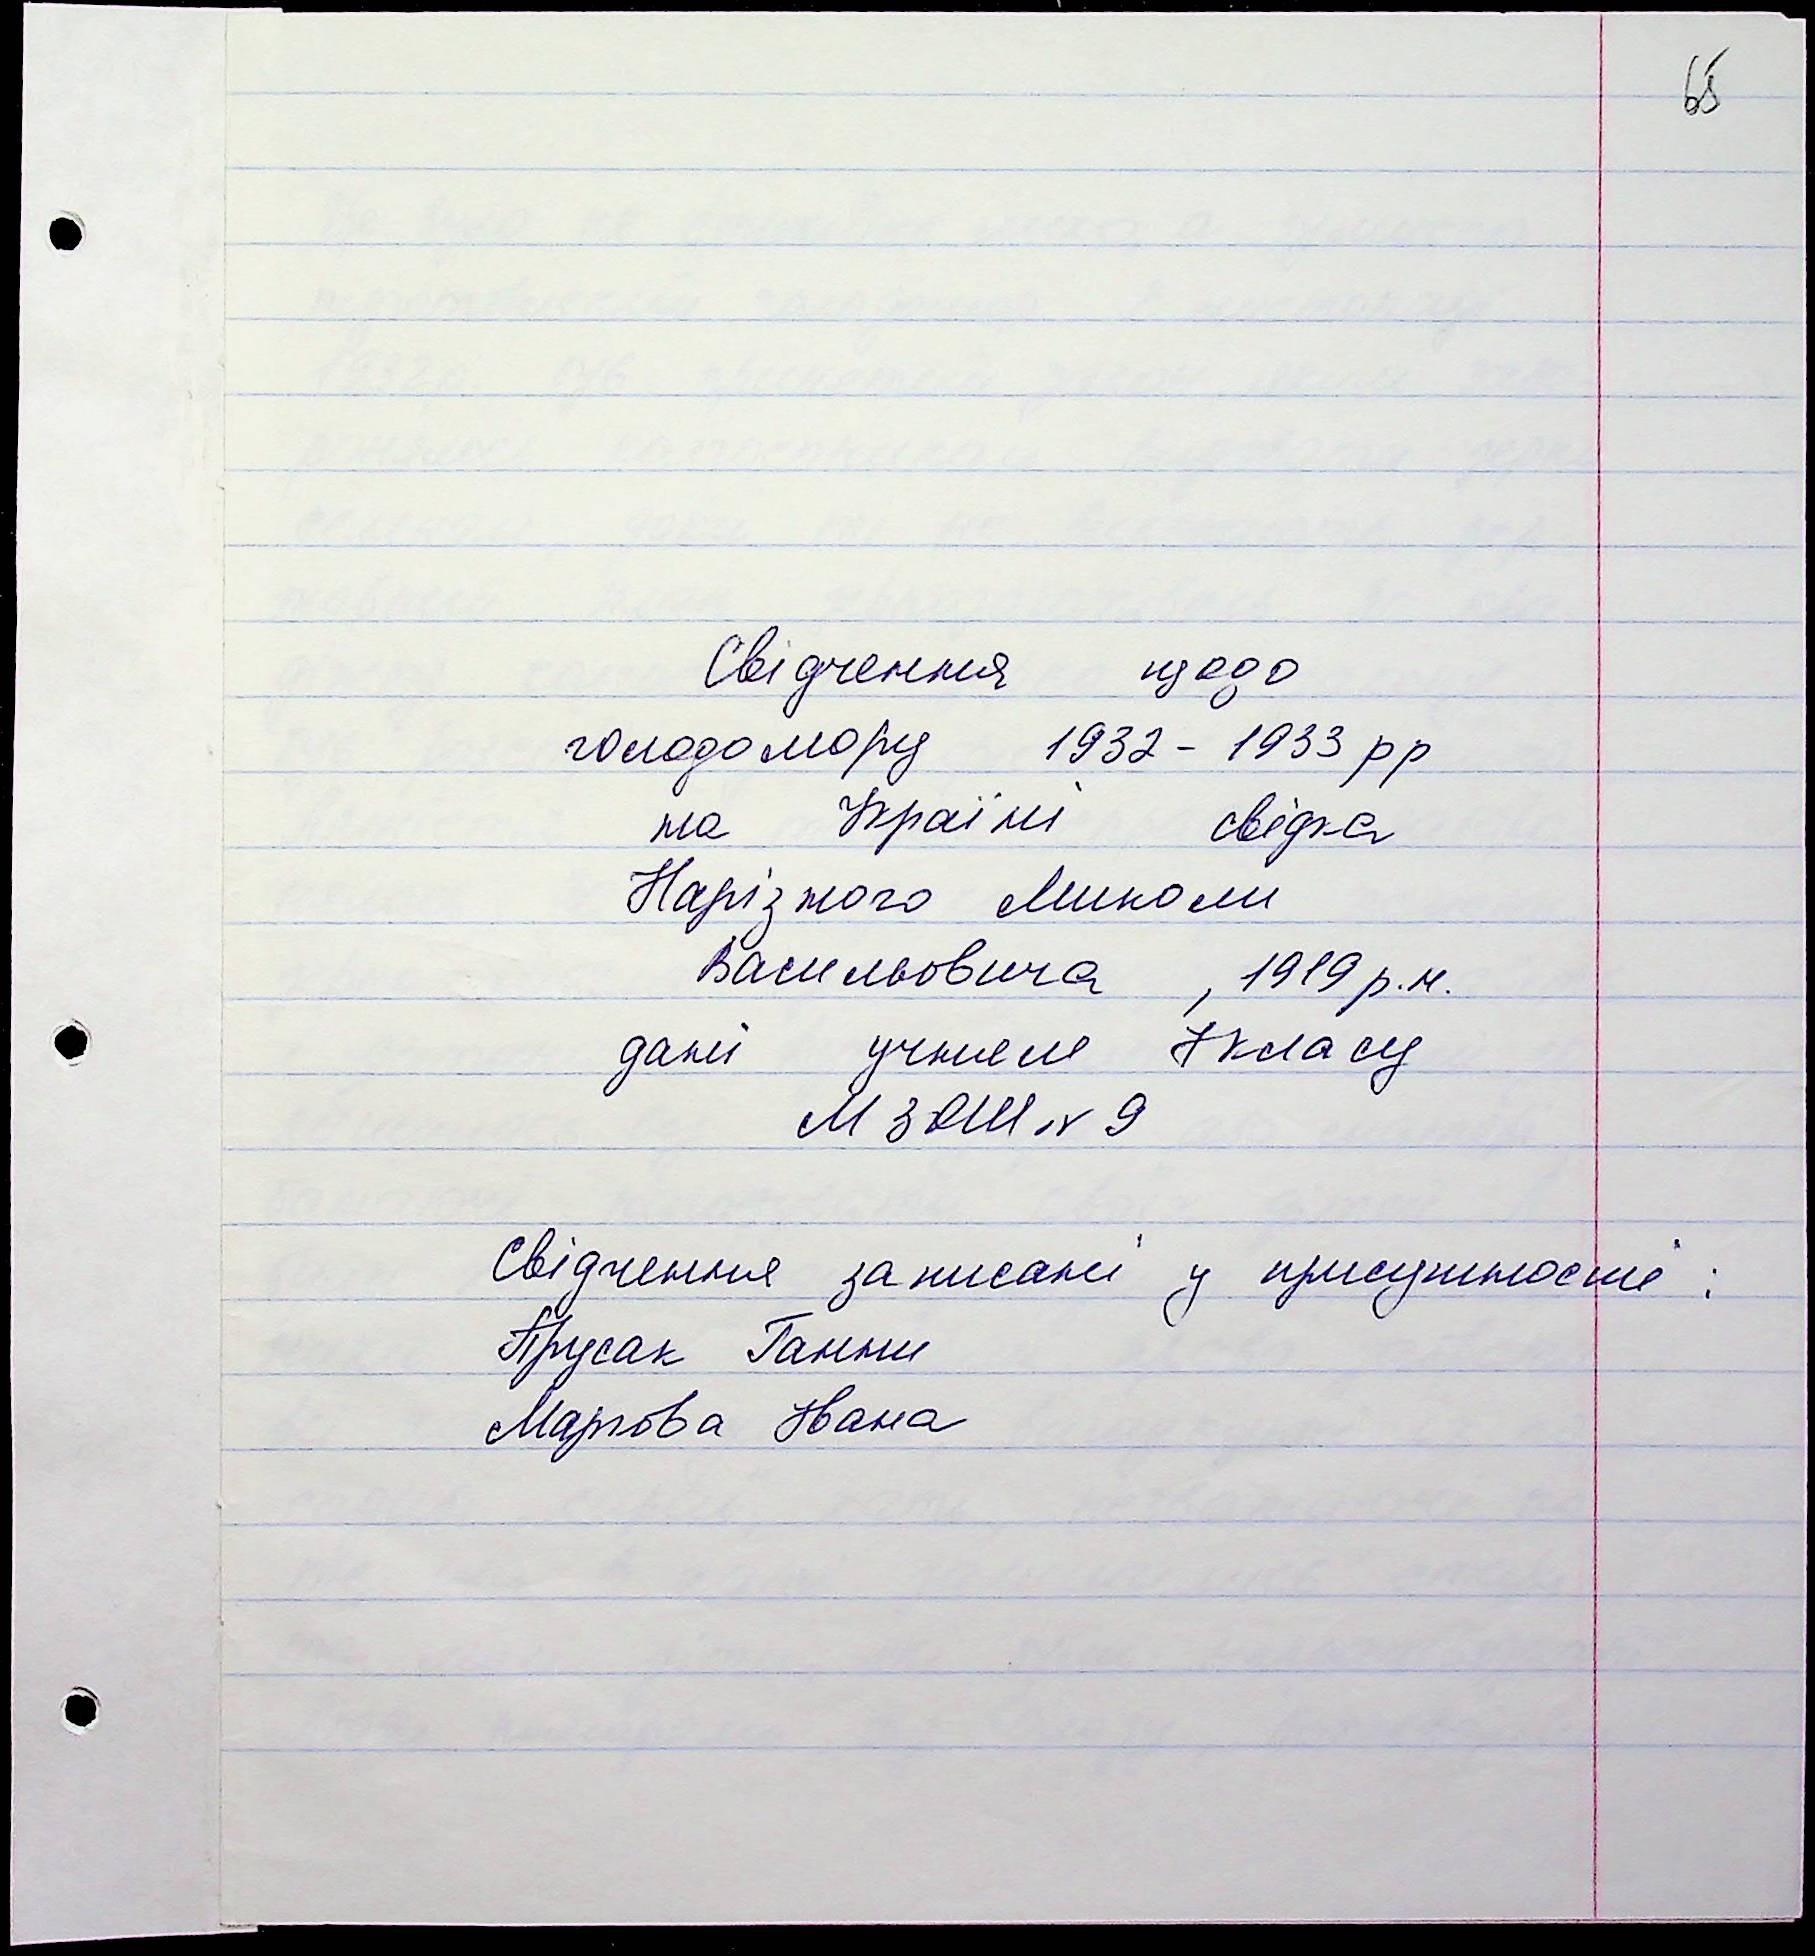 65
Свідчення щодо
голодомору 1932 - 1933 рр
на Україні свідка
Нарізного Миколи
Васильовича , 1919 р.н.
дані учнем 7 класу
МЗОШ №9
Свідчення записані у присутності :
Прусак Ганни
Маркова Івана